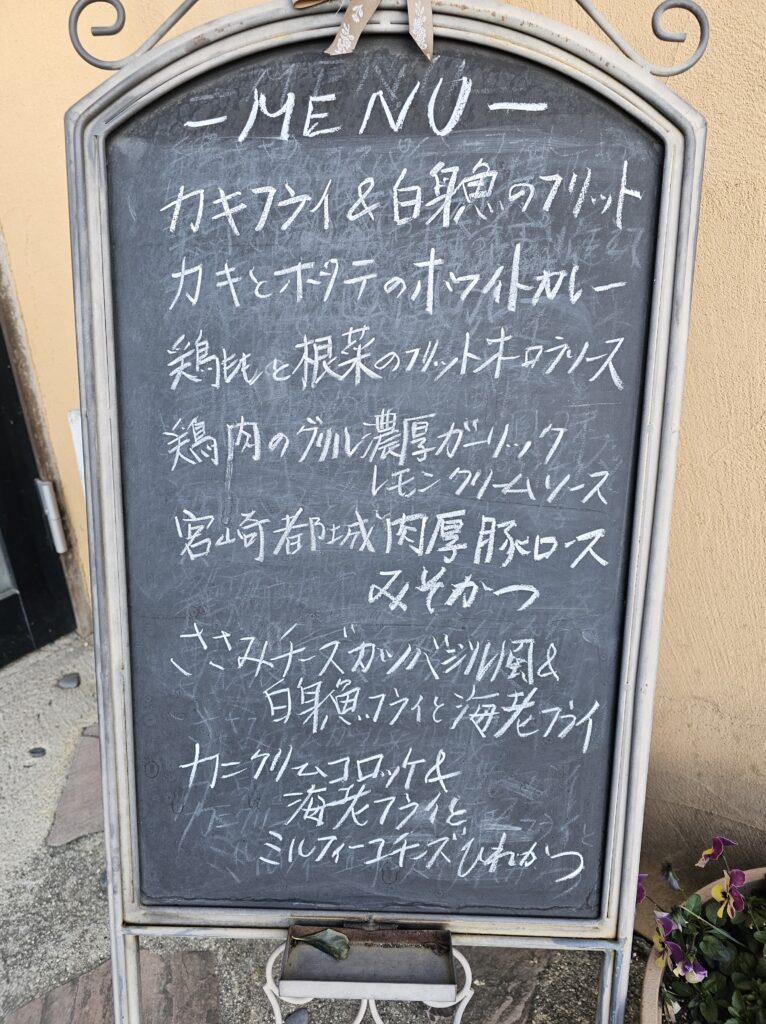 -MENU-
カキフライ&白身魚のフリット
カキとホタテのホワイトカレー
鶏ももと根菜のフリットオーロラソース
鶏肉のグリル濃厚ガーリック
レモンクリームソース
宮崎都城肉厚豚ロース
みそかつ
ささみチーズカツバジル風&
白身魚フライと海老フライ
カニクリームコロッケ&
海老フライと
ミルフィーユチーズひれかつ